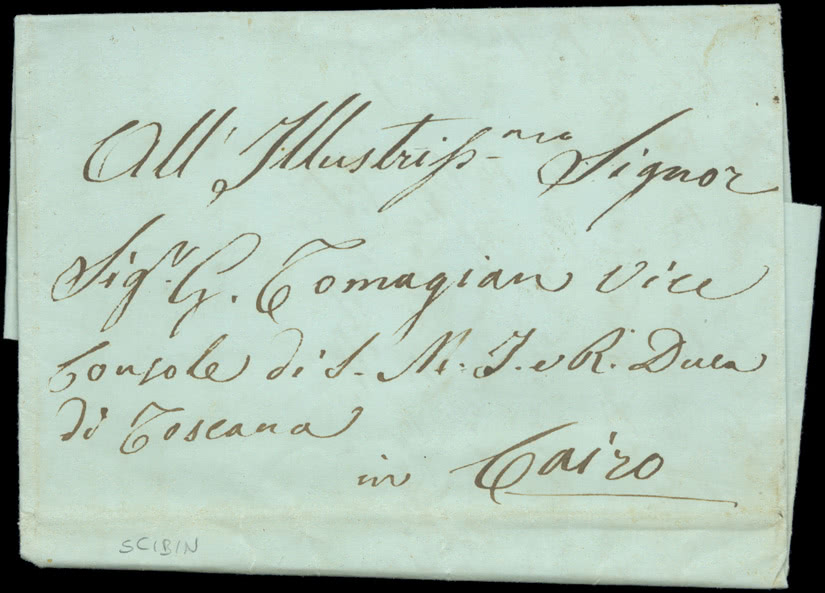 All' Illustriss-mo Signor
Sigr. G. Tomagian Vice
Console di S. M. I. e R. Duca
di Toscana
in Cairo
SCIBIN